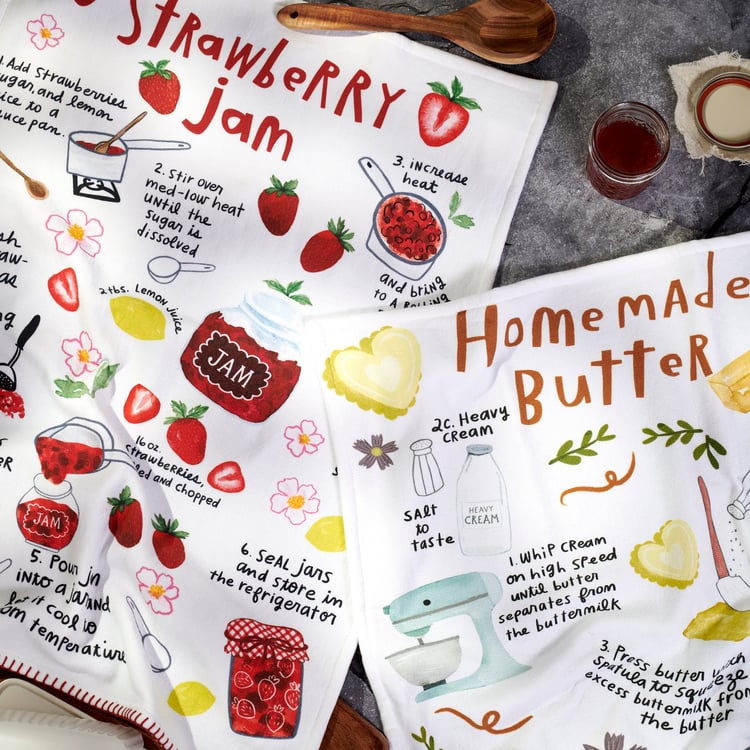 Strawberry
Jam
1. Add strawberries
sugar, and lemon
to a
pan.
2. Stir over
med-low heat
until the
sugar is
dissolved
3. increase
heat
and bring
to a rolling
2 tbs. Lemon juice
JAM
16 oz.
strawberries,
and chopped
JAM
5. Pour jam
into a jar and
let it cool to
temperature
6. Seal jars
and store in
the refrigerator
Homemade
Butter
2c. Heavy
cream
Salt
to
taste
HEAVY
CREAM
1. Whip cream
on high speed
until butter
separates from
the buttermilk
3. Press butter
spatula to squeeze
excess buttermilk from
the butter